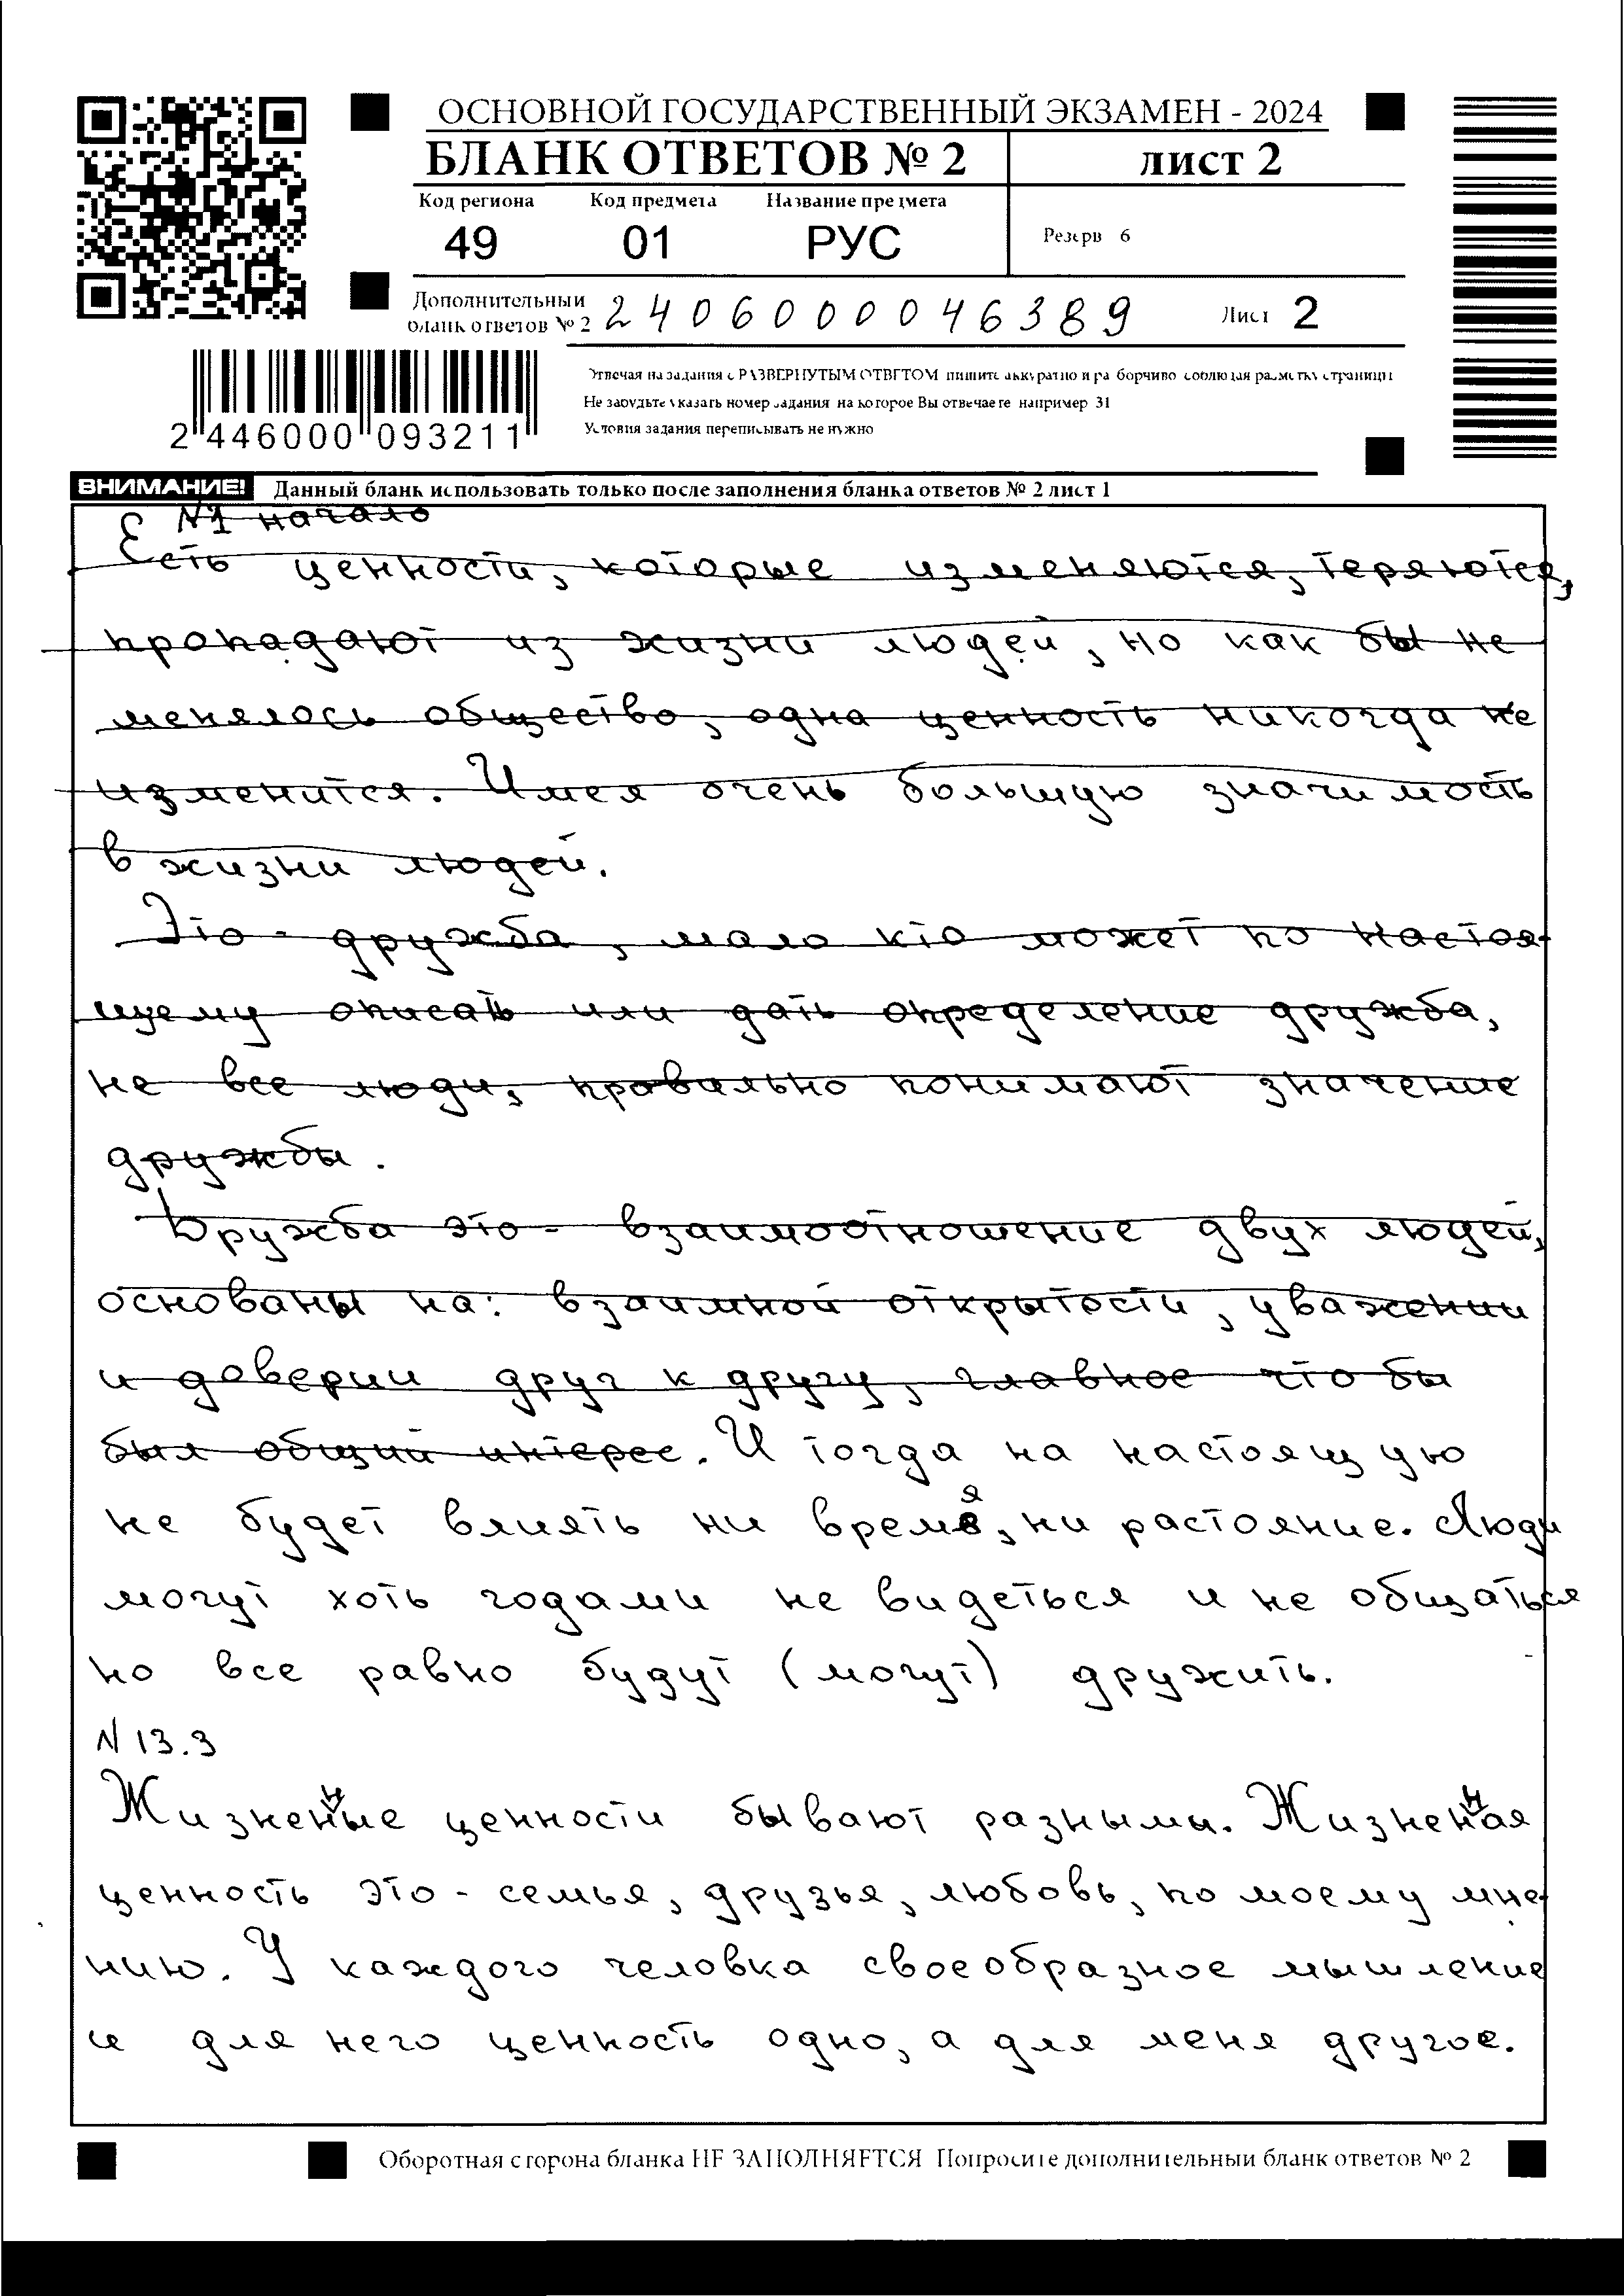 ОСНОВНОЙ ГОСУДАРСТВЕННЫЙ ЭКЗАМЕН - 2024
БЛАНК ОТВЕТОВ № 2 лист 2
Код региона Код предмета Название предмета
49 01 РУС Резерв 6
Дополнительный бланк ответов № 2 2406000046389 Лист 2
Отвечая на задания с РАЗВЕРНУТЫМ ОТВЕТОМ пишите аккуратно и разборчиво соблюдая разметку страницы
Не забудьте указать номер задания на которое Вы отвечаете например 31
Условия задания переписывать не нужно
2 446000 093211
ВНИМАНИЕ! Данный бланк использовать только после заполнения бланка ответов № 2 лист 1
N1 начало
Есть ценности, которые изменяются, теряются,
пропадают из жизни людей, но как бы не
менялось общество, одна ценность никогда не
изменится. Имея очень большую значимость
в жизни людей.
Это - дружба, мало кто может по настоя-
щему описать или дать определение дружба,
не все люди, правильно понимают значение
дружбы.
Дружба это - взаимоотношение двух людей,
основаны на: взаимной открытости, уважении
и доверии друг к другу, главное что бы
был общий интерес. И тогда на настоящую
не будет влиять ни время, ни растояние. Люди
могут хоть годами не видеться и не общаться
но все равно будут (могут) дружить.
N 13.3
Жизненные ценности бывают разными. Жизненная
ценность это - семья, друзья, любовь, по моему мне-
нию. У каждого человка своеобразное мышление
и для него ценность одно, а для меня другое.
Оборотная сторона бланка НЕ ЗАПОЛНЯЕТСЯ Попросите дополнительный бланк ответов № 2